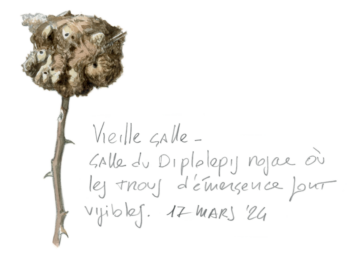 Vieille galle -
galle du Diplolepis rosae où
les trous d'émergence sont
visibles. 17 MARS '24